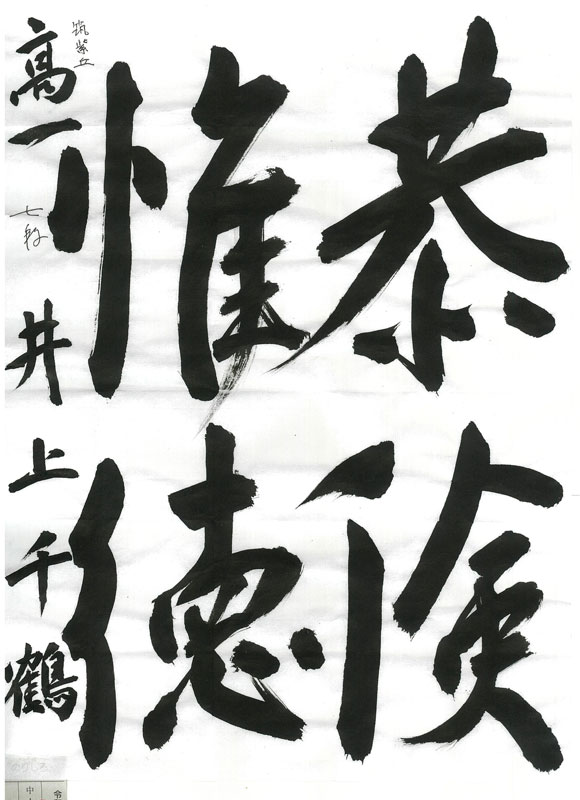 恭倹
惟徳
筑紫丘
高一 井上千鶴
七段